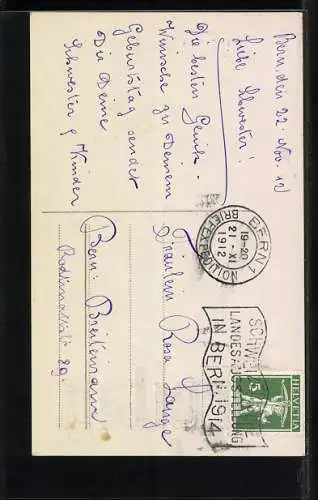 Bern, den 22. Nov. 12
Liebe Schwester!
Die besten Glück-
Wünsche zu Deinem
Geburtstag sendet
Dir Deine
Schwester & Kinder
Fräulein Rosa Lange
Bern: Breitenrain
29.
BERN 1
19-20
21-XI
1912
BRIEFEXPEDITION
SCHWEIZ.
LANDESAUSSTELLUNG
IN BERN 1914
5
HELVETIA